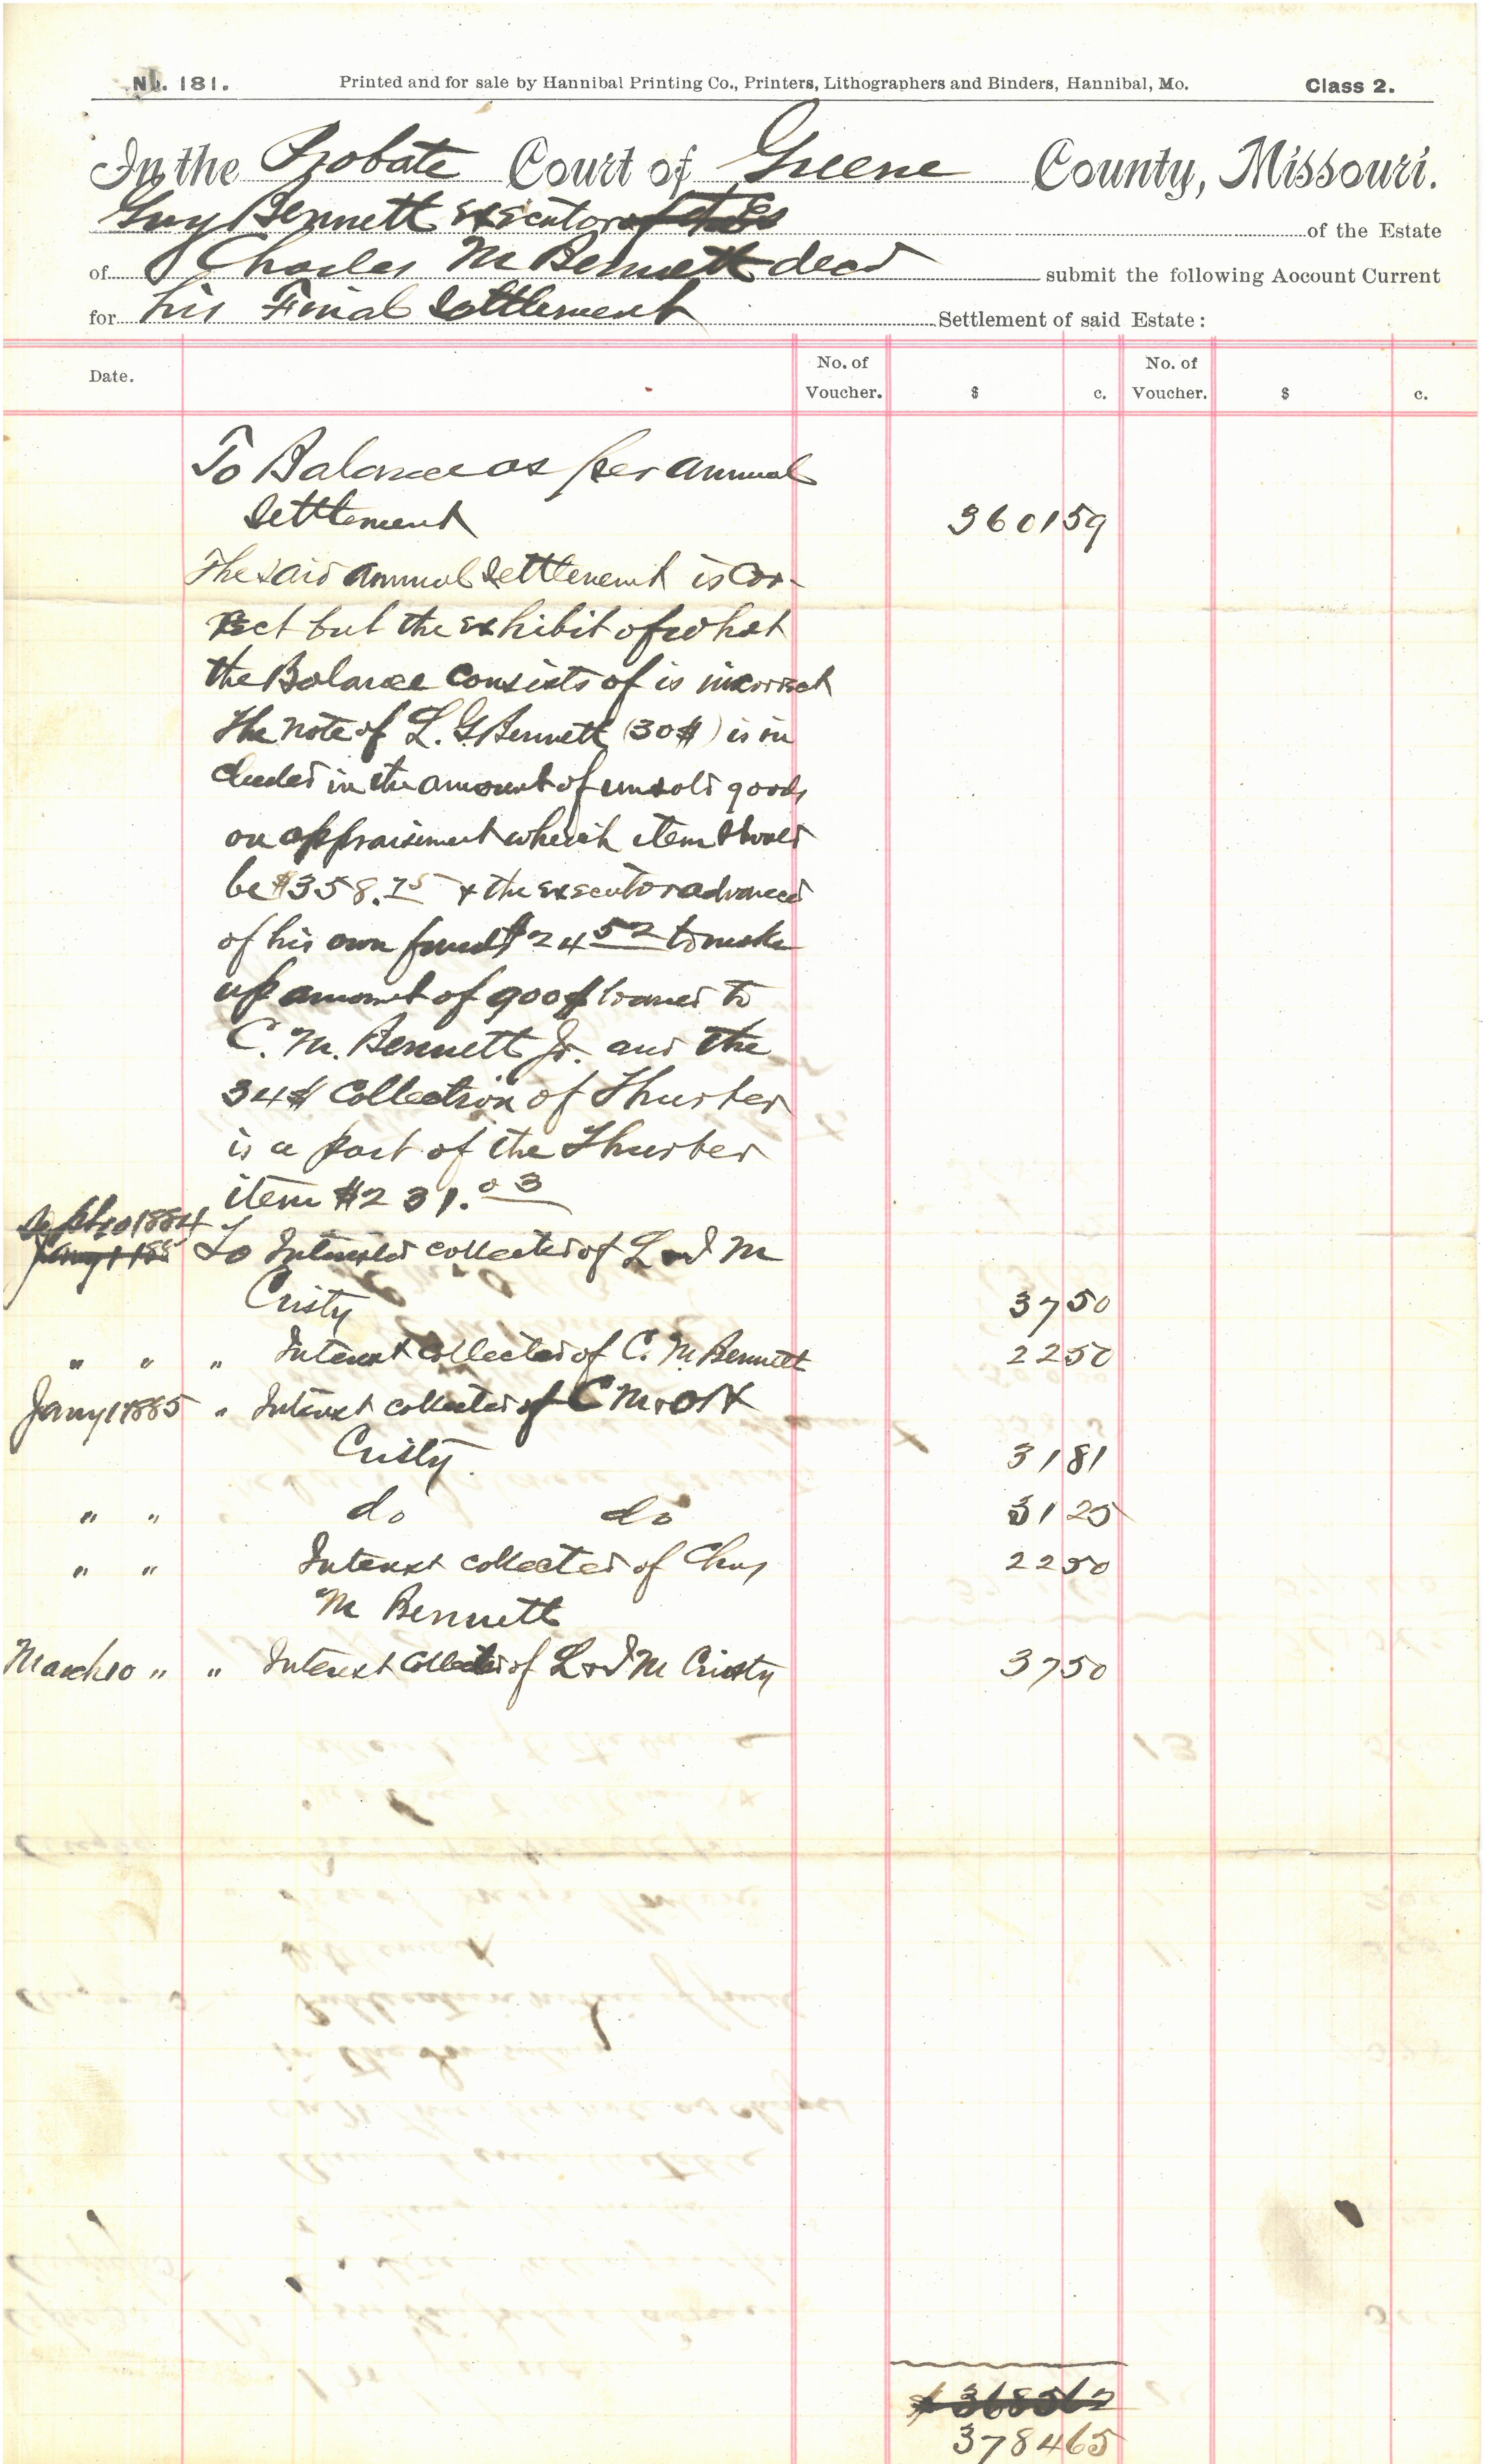 No. 181. Printed and for sale by Hannibal Printing Co., Printers, Lithographers and Binders, Hannibal, Mo. Class 2.
In the Probate Court of Greene County, Missouri.
Guy Bennett executor of the Es of the Estate
of Charles M Bennett decd submit the following Aocount Current
for his Final Settlement Settlement of said Estate:
Date. No. of Voucher. $ c. No. of Voucher. $ c.
To Balance as per annual
Settlement 3601 59
The said annual Settlement is Cor-
rect but the exhibit of what
the Balance consists of is incorrect
The note of L. G. Bennett (30$) is in
cluded in the amount of unsold goods
on appraisement which item should
be $358.75 & the executor advanced
of his own funds $24 52 to make
up amount of 900$ loaned to
C. M. Bennett Jr. and the
34$ Collection of Thurber
is a part of the Thurber
item $231.03
Sept 10 1884
Jany 1 188 To Interest collected of L and M
Cristy 37 50
" " " Interest collected of C. M. Bennett 22 50
Jany 1 1885 " Interest collected of C M & O H
Cristy. 31 81
" " do do 31 25
" " Interest collected of Chas 22 50
M Bennett
March 10 " " Interest collected of L & M Cristy 37 50
$ 3685 62
3784 65